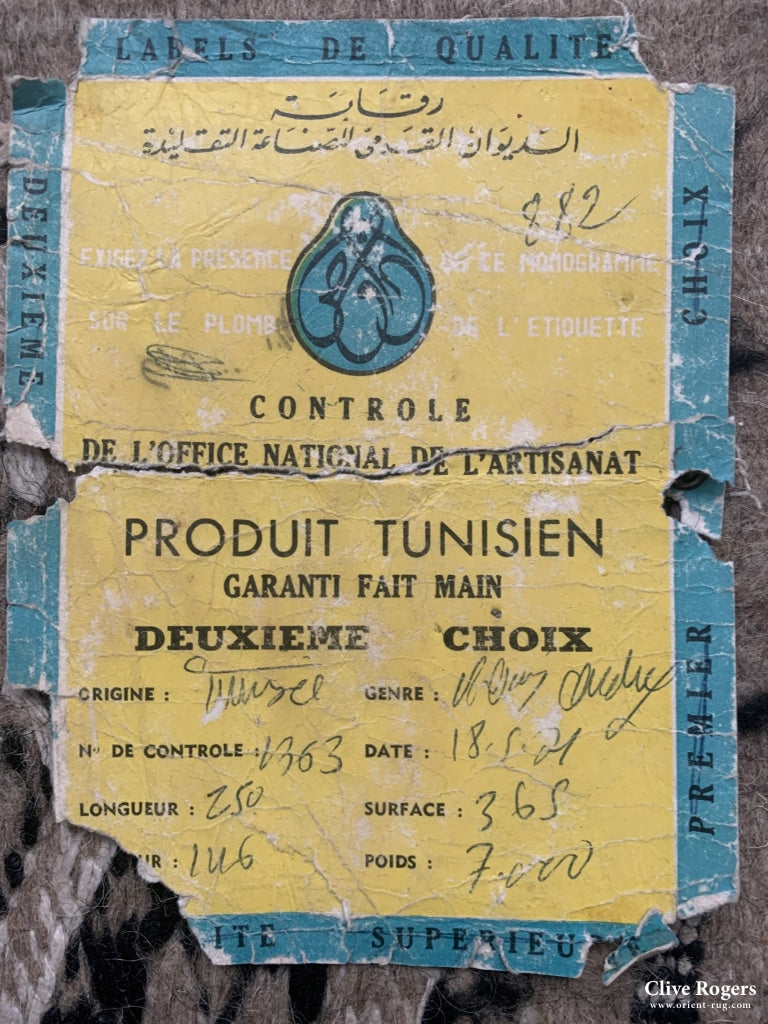 LABELS DE QUALITE
رقابة
الديوان القومي للصناعة التقليدية
882
EXIGEZ LA PRESENCE DE CE MONOGRAMME
SUR LE PLOMB DE L'ETIQUETTE
CONTROLE
DE L'OFFICE NATIONAL DE L'ARTISANAT
PRODUIT TUNISIEN
GARANTI FAIT MAIN
DEUXIEME CHOIX
ORIGINE : GENRE :
N° DE CONTROLE : 1363 DATE :
LONGUEUR : 250 SURFACE : 365
UR : 146 POIDS : 7.000
ITE SUPERIEU
DEUXIEME
CHOIX
PREMIER
Clive Rogers
www.orient-rug.com